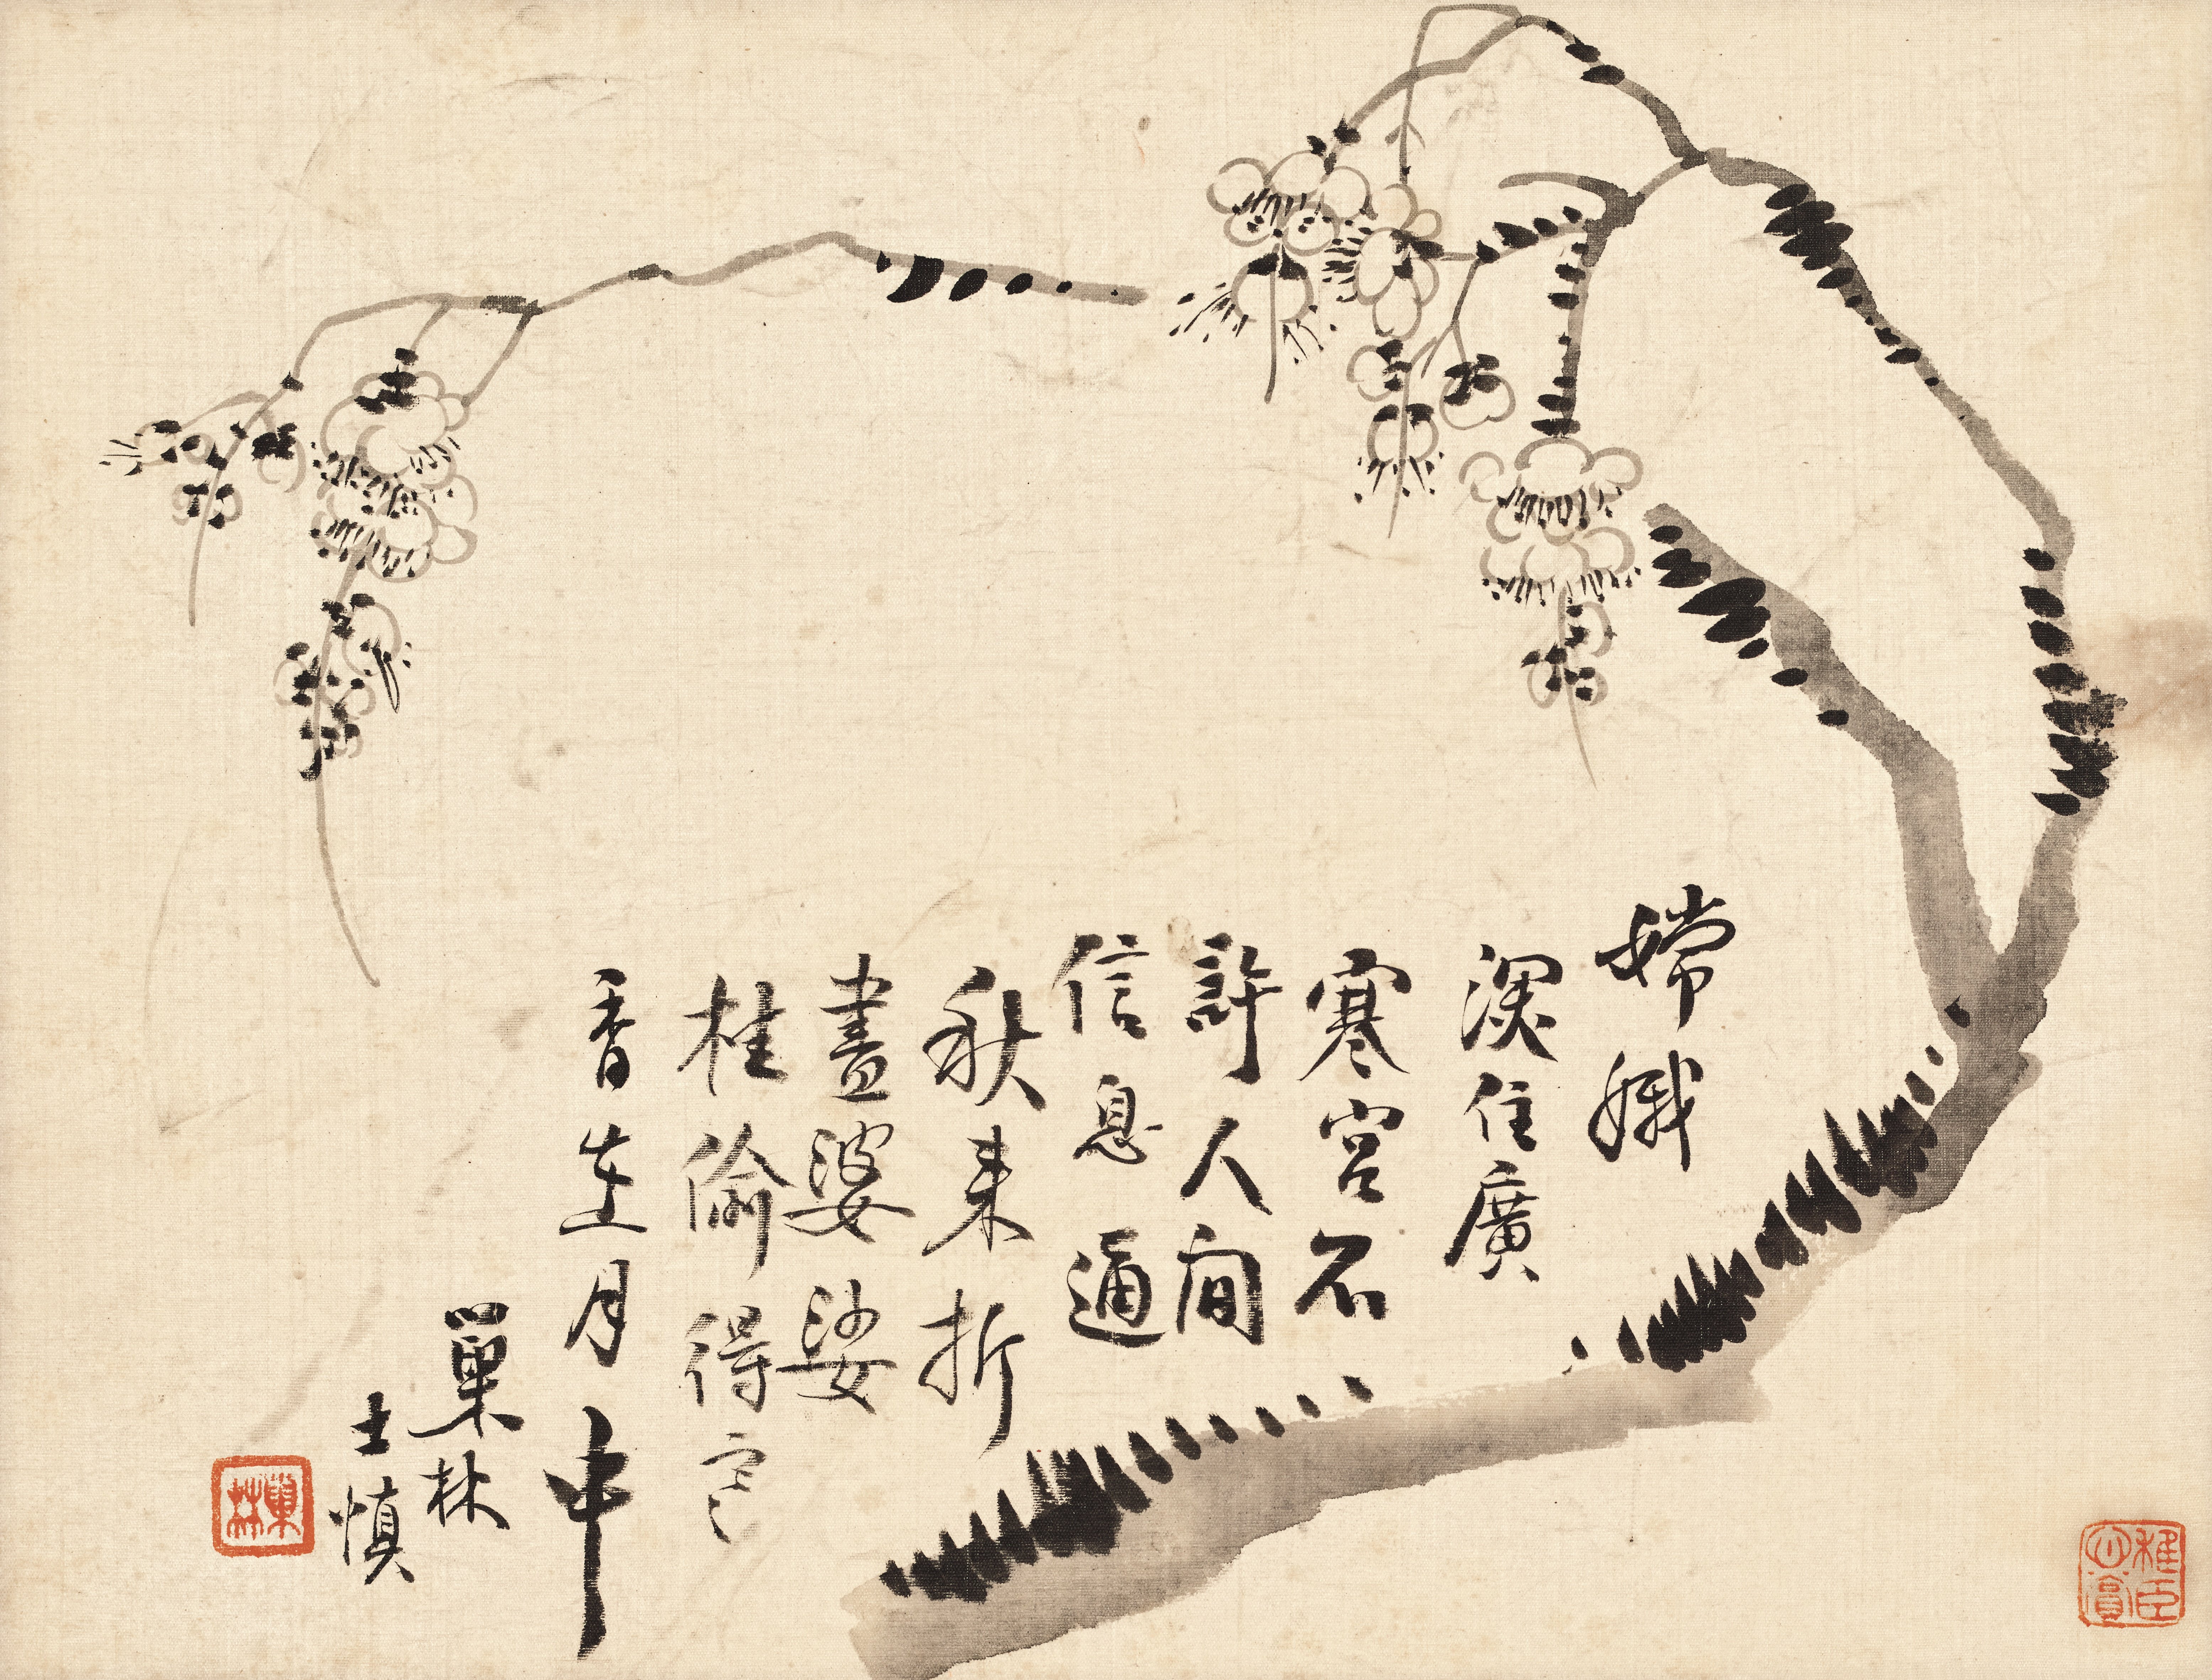 嫦娥
深住廣
寒宮不
許人間
信息通
秋來折
盡婆娑
桂偷得
香在月中
巢林
士慎
巢林
臣
心賞